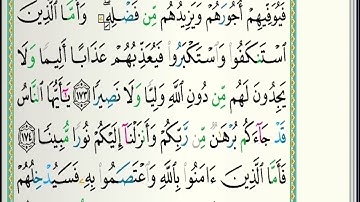 فَيُوَفِّيهِمْ أُجُورَهُمْ وَيَزِيدُهُم مِّن فَضْلِهِۦ ۖ وَأَمَّا ٱلَّذِينَ
ٱسْتَنكَفُوا۟ وَٱسْتَكْبَرُوا۟ فَيُعَذِّبُهُمْ عَذَابًا أَلِيمًا وَلَا
يَجِدُونَ لَهُم مِّن دُونِ ٱللَّهِ وَلِيًّا وَلَا نَصِيرًا ١٧٣ يَـٰٓأَيُّهَا ٱلنَّاسُ
قَدْ جَآءَكُم بُرْهَـٰنٌ مِّن رَّبِّكُمْ وَأَنزَلْنَآ إِلَيْكُمْ نُورًا مُّبِينًا ١٧٤
فَأَمَّا ٱلَّذِينَ ءَامَنُوا۟ بِٱللَّهِ وَٱعْتَصَمُوا۟ بِهِۦ فَسَيُدْخِلُهُمْ